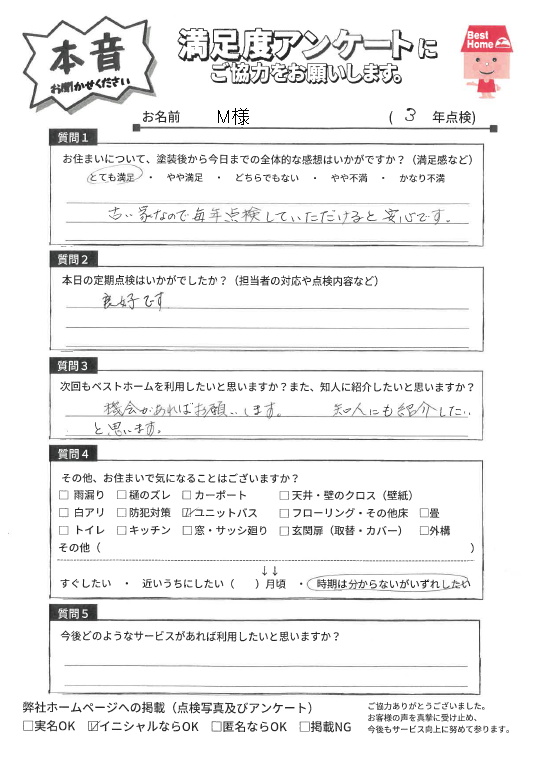 本音
お聞かせください
満足度アンケートに
ご協力をお願いします。
Best
Home
お名前 M様 ( 3 年点検)
質問1
お住まいについて、塗装後から今日までの全体的な感想はいかがですか？（満足感など）
とても満足 ・ やや満足 ・ どちらでもない ・ やや不満 ・ かなり不満
古い家なので毎年点検していただけると安心です。
質問2
本日の定期点検はいかがでしたか？（担当者の対応や点検内容など）
良好です
質問3
次回もベストホームを利用したいと思いますか？また、知人に紹介したいと思いますか？
機会があればお願いします。 知人にも紹介したい
と思います。
質問4
その他、お住まいで気になることはございますか？
□ 雨漏り □ 樋のズレ □ カーポート □ 天井・壁のクロス（壁紙）
□ 白アリ □ 防犯対策 ☑ ユニットバス □ フローリング・その他床 □畳
□ トイレ □ キッチン □ 窓・サッシ廻り □ 玄関扉（取替・カバー） □外構
その他（ ）
↓↓
すぐしたい ・ 近いうちにしたい（ ）月頃 ・ 時期は分からないがいずれしたい
質問5
今後どのようなサービスがあれば利用したいと思いますか？
弊社ホームページへの掲載（点検写真及びアンケート）
□実名OK ☑イニシャルならOK □匿名ならOK □掲載NG
ご協力ありがとうございました。
お客様の声を真摯に受け止め、
今後もサービス向上に努めて参ります。